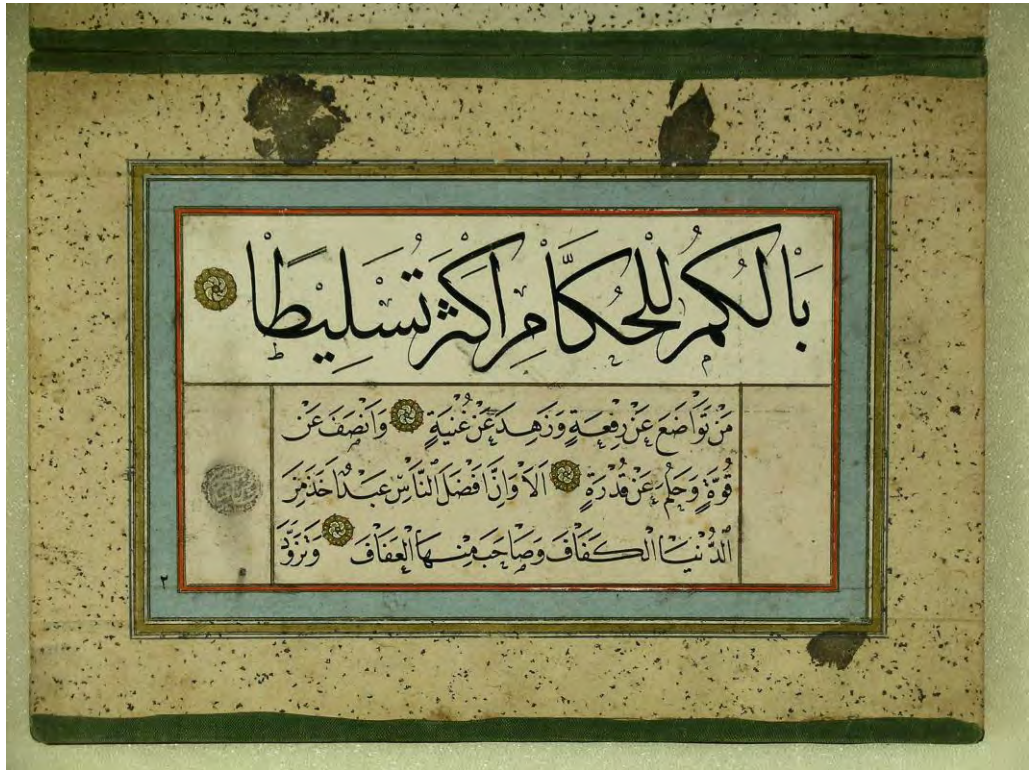 بَالُكُمْ لِلْحُكَّامِ اَكْثَرْتُسْلِيطًا
مَنْ تَوَاضَعَ عَنْ رِفْعَةٍ وَزَهِدَ عَنْ غُنْيَةٍ وَاَنْصَفَ عَنْ
قُوَّةٍ وَحَلُمَ عَنْ قُدْرَةٍ اَلَا وَاِنَّ اَفْضَلَ النَّاسِ عَبْدٌ اَخَذَ مِنَ
الدُّنْيَا الْكَفَافَ وَصَاحَبَ مِنْهَا الْعَفَافَ وَتَزَوَّدَ
٢